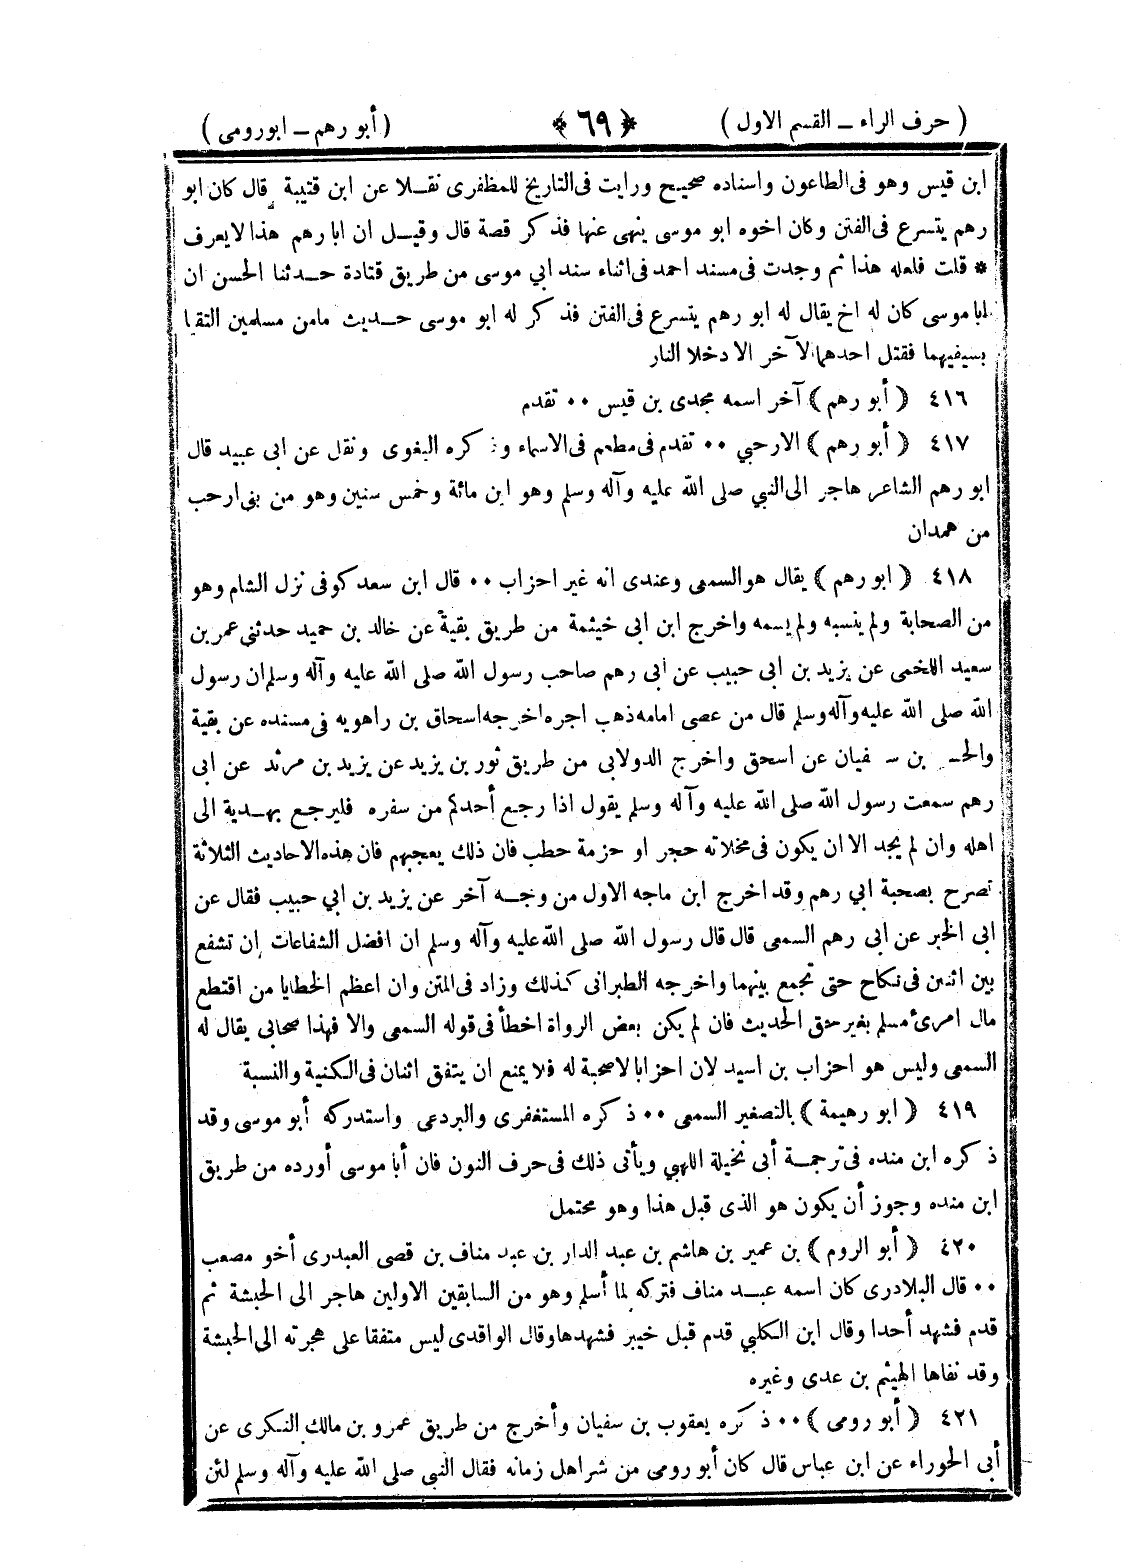 ( حرف الراء ــ القسم الاول ) ﴿ ٦٩ ﴾ ( أبو رهم ــ ابورومى )
ابن قيس وهو فى الطاعون واسناده صحيح ورايت فى التاريخ للمظفرى نقلا عن ابن قتيبة قال كان ابو
رهم يتسرع فى الفتن وكان اخوه ابو موسى ينهى عنها فذكر قصة قال وقيل ان ابا رهم هذا لايعرف
* قلت فلعله هذا ثم وجدت فى مسند احمد فى اثناء سند ابي موسى من طريق قتادة حدثنا الحسن ان
ابا موسى كان له اخ يقال له ابو رهم يتسرع فى الفتن فذكر له ابو موسى حديث مامن مسلمين التقيا
بسيفيهما فقتل احدهما الآخر الا دخلا النار
٤١٦ ( أبو رهم ) آخر اسمه مجدى بن قيس ٠٠ تقدم
٤١٧ ( أبو رهم ) الارحبي ٠٠ تقدم فى مطعم فى الاسماء وذكره البغوى ونقل عن ابى عبيد قال
ابو رهم الشاعر هاجر الى النبي صلى الله عليه وآله وسلم وهو ابن مائة وخمس سنين وهو من بنى ارحب
من همدان
٤١٨ ( ابو رهم ) يقال هو السمعى وعندى انه غير احزاب ٠٠ قال ابن سعد كوفى نزل الشام وهو
من الصحابة ولم ينسبه ولم يسمه واخرج ابن ابى خيثمة من طريق بقية عن خالد بن حميد حدثنى عمر بن
سعيد اللخمى عن يزيد بن ابى حبيب عن ابى رهم صاحب رسول الله صلى الله عليه وآله وسلم ان رسول
الله صلى الله عليه وآله وسلم قال من عصى امامه ذهب اجره اخرجه اسحاق بن راهويه فى مسنده عن بقية
والحسن بن سفيان عن اسحق واخرج الدولابى من طريق ثور بن يزيد عن يزيد بن مرثد عن ابى
رهم سمعت رسول الله صلى الله عليه وآله وسلم يقول اذا رجع أحدكم من سفره فليرجع بهدية الى
اهله وان لم يجد الا ان يكون فى مخلاته حجر او حزمة حطب فان ذلك يعجبهم فان هذه الاحاديث الثلاثة
تصرح بصحبة ابي رهم وقد اخرج ابن ماجه الاول من وجه آخر عن يزيد بن ابي حبيب فقال عن
ابى الخبر عن ابى رهم السمعى قال قال رسول الله صلى الله عليه وآله وسلم ان افضل الشفاعات ان تشفع
بين اثنين فى نكاح حتى تجمع بينهما واخرجه الطبرانى كذلك وزاد فى المتن وان اعظم الخطايا من اقتطع
مال امرئ مسلم بغير حق الحديث فان لم يكن بعض الرواة اخطأ فى قوله السمعى والا فهذا صحابى يقال له
السمعى وليس هو احزاب بن اسيد لان احزابا لاصحبة له فلا يمنع ان يتفق اثنان فى الكنية والنسبة
٤١٩ ( ابو رهيمة ) بالتصغير السمعى ٠٠ ذكره المستغفرى والبردعى واستدركه أبو موسى وقد
ذكره ابن منده فى ترجمة أبى نخيلة اللهبي ويأتى ذلك فى حرف النون فان أبا موسى أورده من طريق
ابن منده وجوز أن يكون هو الذى قبل هذا وهو محتمل
٤٢٠ ( أبو الروم ) بن عمير بن هاشم بن عبد الدار بن عبد مناف بن قصى العبدرى أخو مصعب
٠٠ قال البلادرى كان اسمه عبد مناف فتركه لما أسلم وهو من السابقين الاولين هاجر الى الحبشة ثم
قدم فشهد أحدا وقال ابن الكلبي قدم قبل خيبر فشهدها وقال الواقدى ليس متفقا على هجرته الى الحبشة
وقد نفاها الهيثم بن عدى وغيره
٤٢١ ( أبو رومى ) ٠٠ ذكره يعقوب بن سفيان وأخرج من طريق عمرو بن مالك النكرى عن
أبى الحوراء عن ابن عباس قال كان أبو رومى من شر اهل زمانه فقال النبى صلى الله عليه وآله وسلم لئن